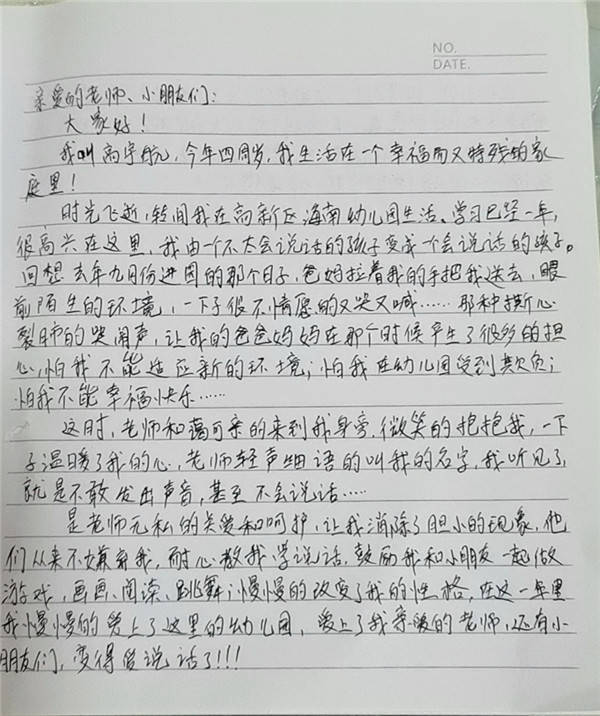 NO.
DATE.
亲爱的老师、小朋友们:
大家好!
我叫高宇航,今年四周岁,我生活在一个幸福而又特殊的家
庭里!
时光飞逝,转间我在高新区海南幼儿园生活、学习已经一年,
很高兴在这里,我由一个不太会说话的孩子变成一个会说话的孩子。
回想去年九月份进园的那个日子,爸妈拉着我的手把我送去,眼
前陌生的环境,一下子很不情愿的又哭又喊……那种撕心
裂肺的哭闹声,让我的爸爸妈妈在那个时候产生了很多的担
心,怕我不能适应新的环境;怕我在幼儿园受到欺负;
怕我不能幸福快乐……
这时,老师和蔼可亲的来到我身旁,微笑的抱抱我,一下
子温暖了我的心,老师轻声细语的叫我的名字,我听见了,
就是不敢发出声音,甚至不会说话……
是老师无私的关爱和呵护,让我消除了胆小的现象,他
们从来不嫌弃我,耐心教我学说话,鼓励我和小朋友一起做
游戏,画画、阅读、跳舞;慢慢的改变了我的性格,在这一年里
我慢慢的爱上了这里的幼儿园,爱上了我亲爱的老师,还有小
朋友们,变得爱说话了!!!